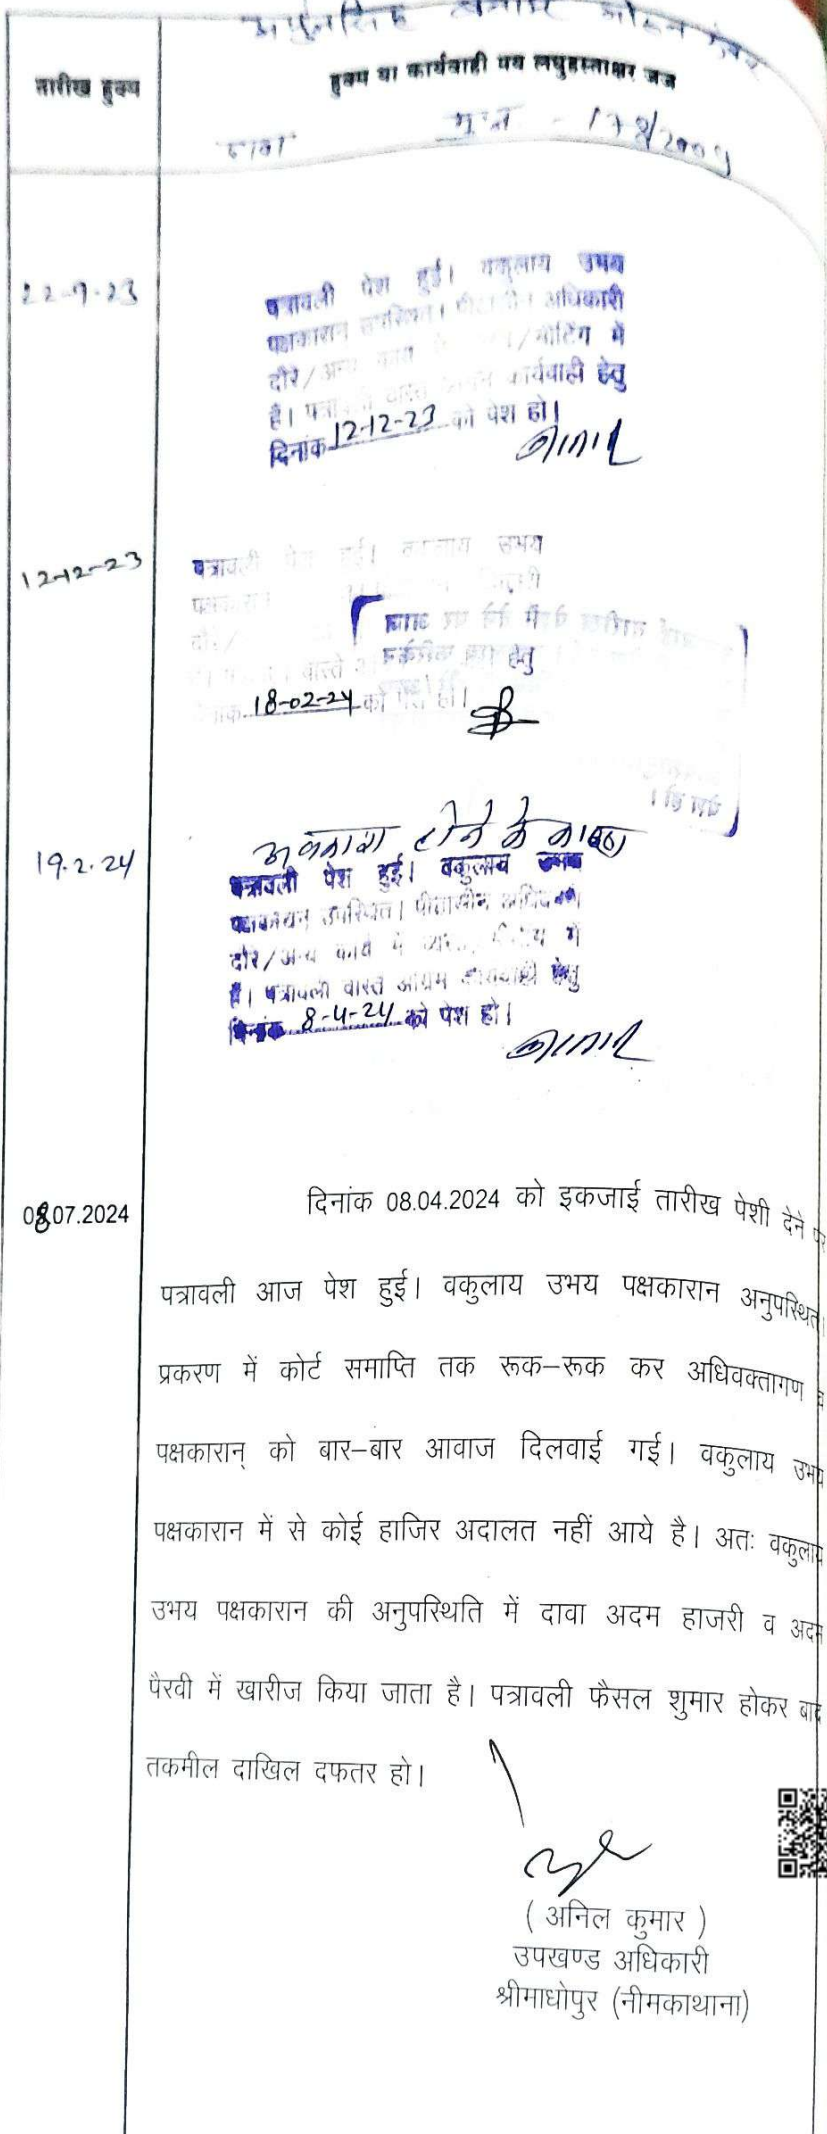 अर्जुनसिंह बनाम मोहन कंवर
तारीख हुक्म
हुक्म या कार्यवाही मय लघुहस्ताक्षर जज
दावा मु.न. - 178/2009
22-9-23
पत्रावली पेश हुई। वकुलाय उभय
पक्षकारान उपस्थित। पीठासीन अधिकारी
दौरे/अन्य कार्य /मीटिंग में
है। पत्रावली वास्ते अग्रिम कार्यवाही हेतु
दिनांक 12-12-23 को पेश हो।
12-12-23
पत्रावली पेश हुई। वकुलाय उभय
दौरे/
वास्ते हेतु
18-02-24 को पेश हो।
पेश हुई।
19.2.24
अवकाश होने के कारण
पत्रावली पेश हुई। वकुलाय उभय
पक्षकारान उपस्थित। पीठासीन अधिकारी
दौरे/अन्य कार्य में व्यस्त में
है। पत्रावली वास्ते अग्रिम कार्यवाही हेतु
दिनांक 8-4-24 को पेश हो।
08.07.2024
दिनांक 08.04.2024 को इकजाई तारीख पेशी देने पर
पत्रावली आज पेश हुई। वकुलाय उभय पक्षकारान अनुपस्थित।
प्रकरण में कोर्ट समाप्ति तक रूक–रूक कर अधिवक्तागण व
पक्षकारान् को बार–बार आवाज दिलवाई गई। वकुलाय उभय
पक्षकारान में से कोई हाजिर अदालत नहीं आये है। अतः वकुलाय
उभय पक्षकारान की अनुपस्थिति में दावा अदम हाजरी व अदम
पैरवी में खारीज किया जाता है। पत्रावली फैसल शुमार होकर बाद
तकमील दाखिल दफतर हो।
( अनिल कुमार )
उपखण्ड अधिकारी
श्रीमाधोपुर (नीमकाथाना)